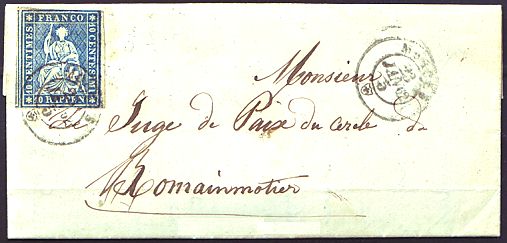 FRANCO
10 CENTIMES
10 CENTESIMI
10 RAPPEN
Monsieur
Le Juge de Paix du cercle de
Romainmotier